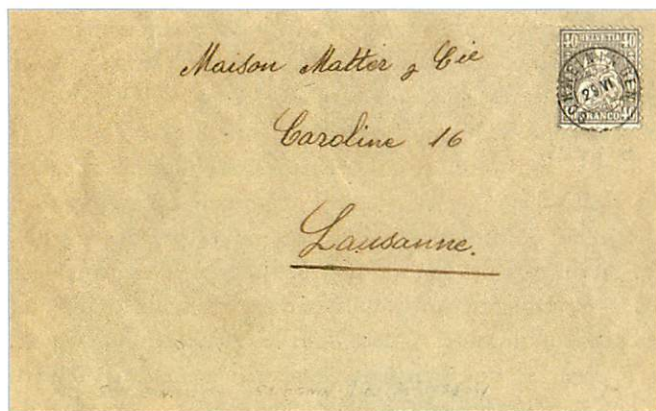 Maison Matter & Cie
Caroline 16
Lausanne.
40 HELVETIA 40
29 VI
FRANCO 40